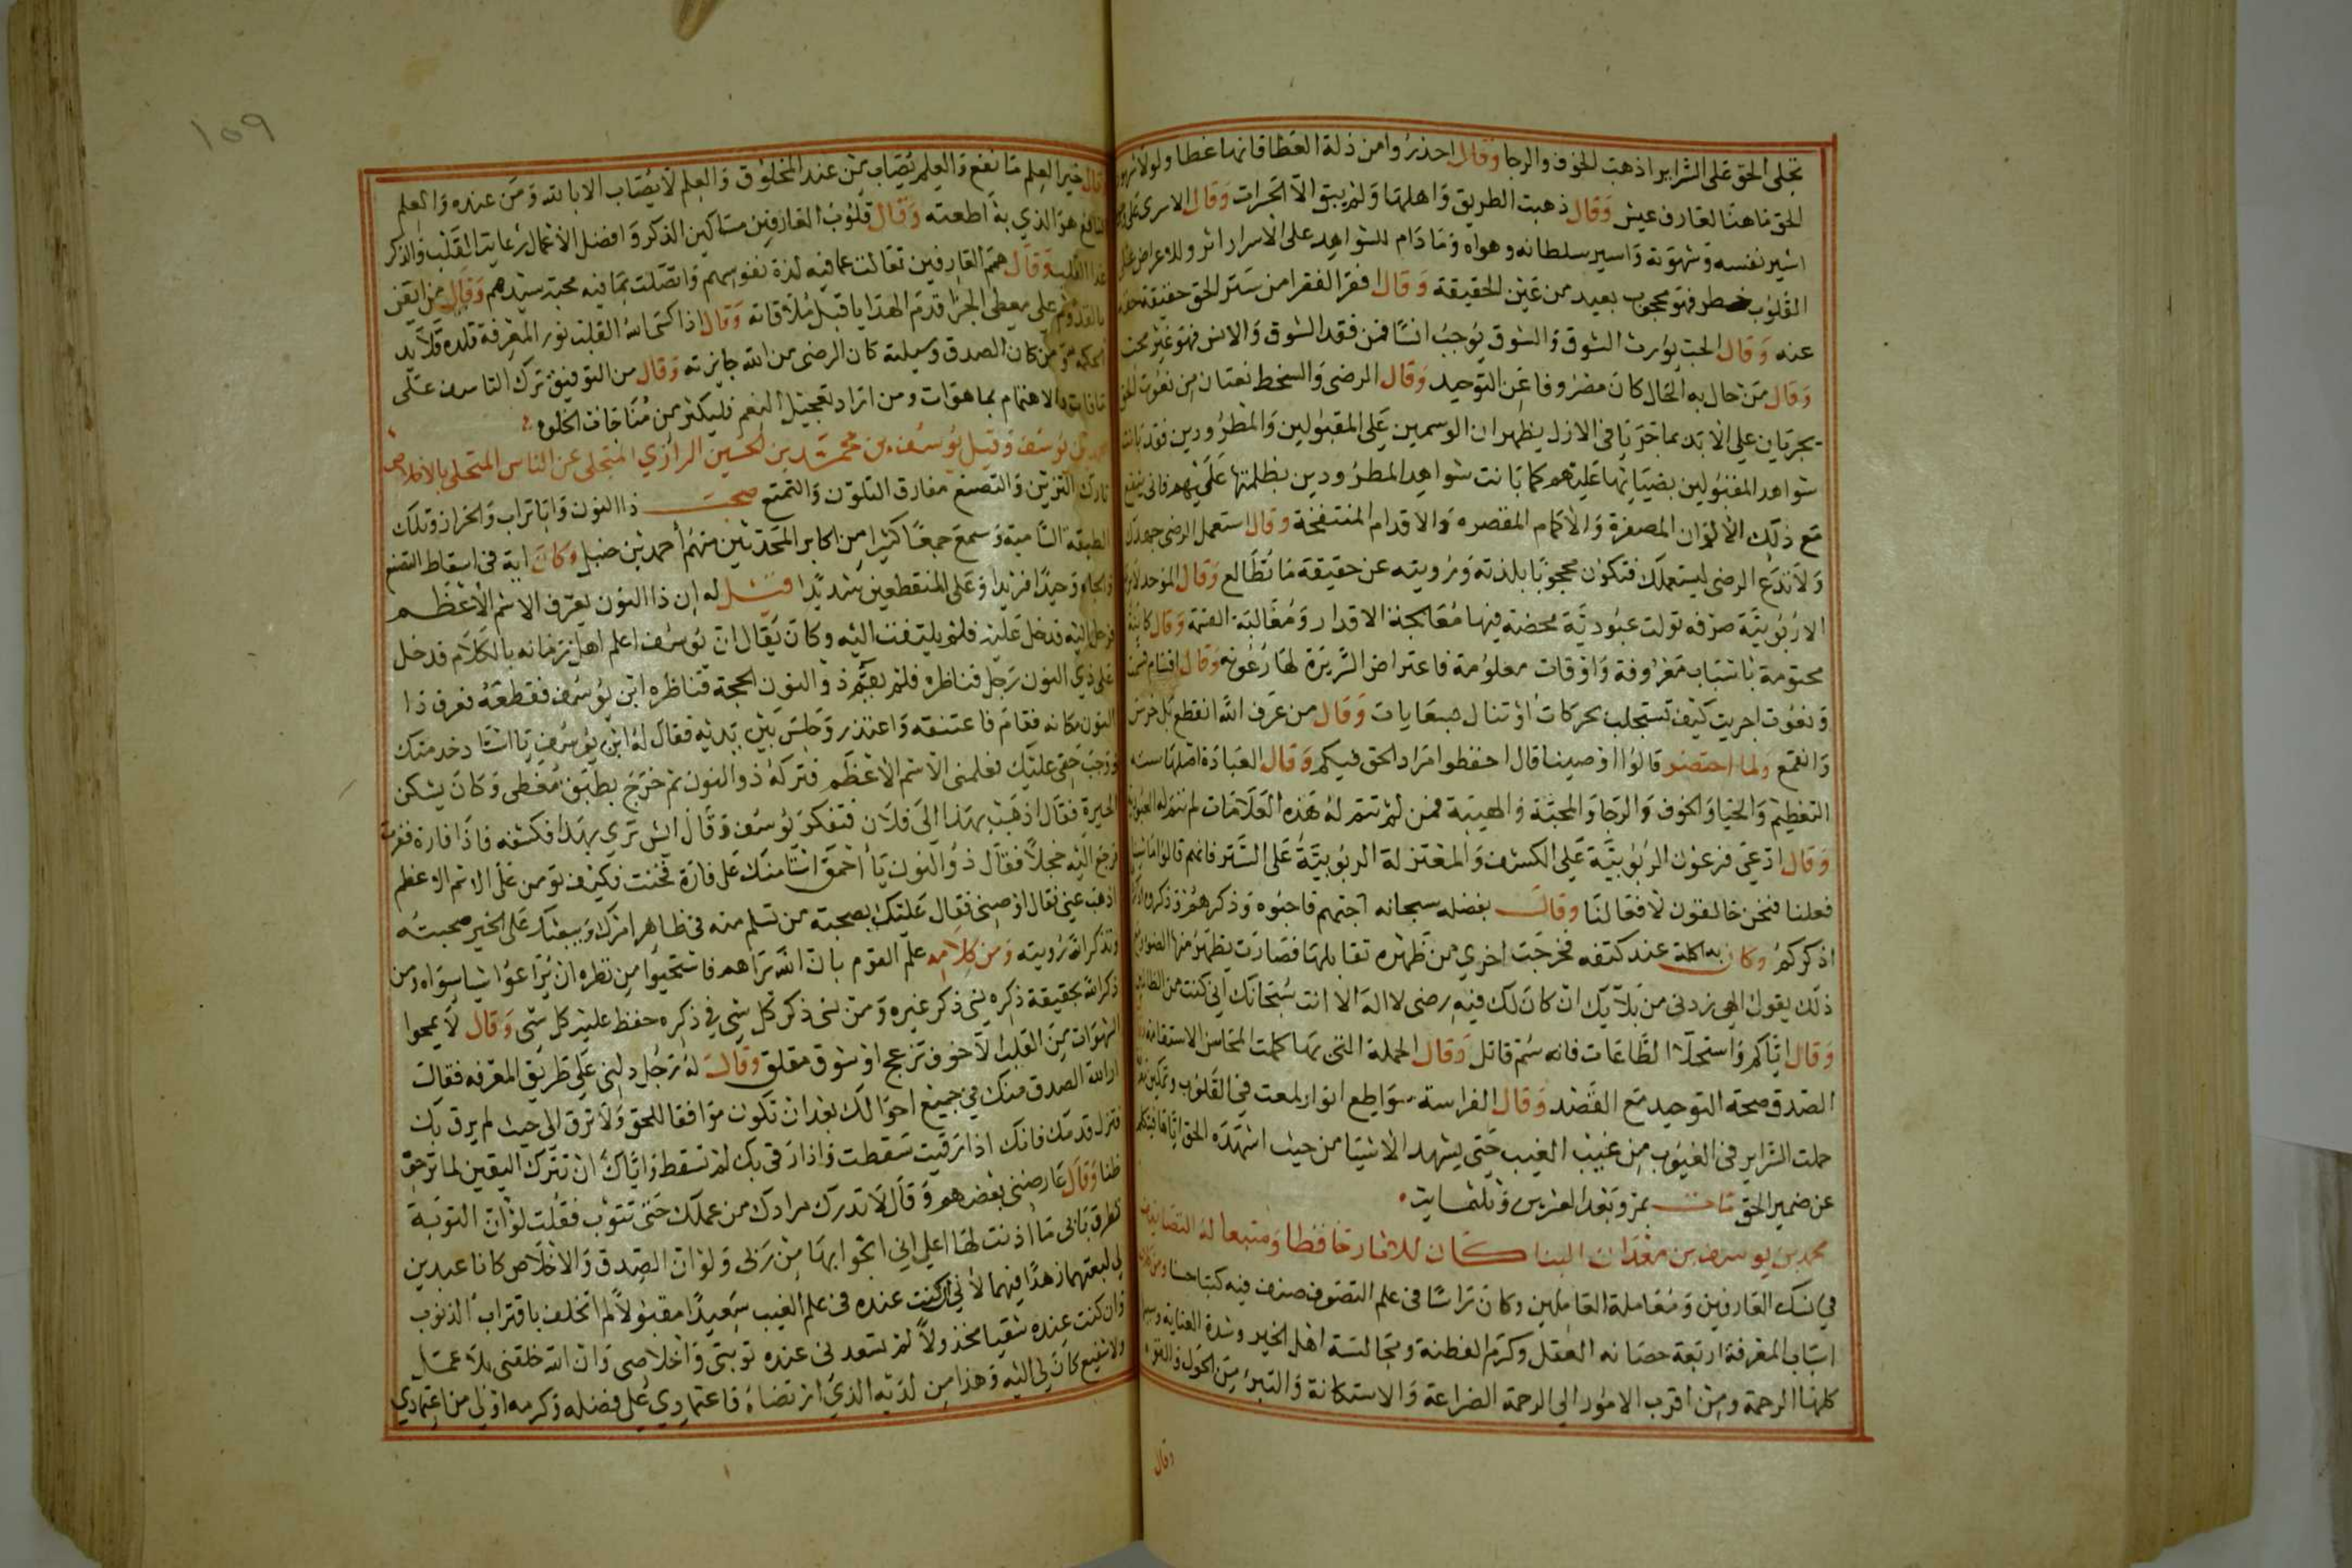 تجلى الحق على السراير اذهب الخوف والرجا وقال احذروا من ذلة العطا فانها غطا ولولا
الحق ما هنا لعارف عيش وقال ذهبت الطريق واهلها ولم يبق الا الحرات وقال الاسرى على
اسير نفسه وشهوته واسير سلطانه وهواه وما دام للشواهد على الاسرار اثر وللاعراض على
القلوب خطر فهو محجوب بعيد من عين الحقيقة وقال افقر الفقرا من ستر الحق حقيقة حقه
عنه وقال الحب يورث الشوق والشوق يوجب انسا فمن فقد الشوق والانس فهو غير محب
وقال من حال به الحال كان مصروفا عن التوحيد وقال الرضى والسخط نعتان من نعوت الحق
يجريان على الابد بما جريا فى الازل يظهران الوسمين على المقبولين والمطرودين فقد بانت
شواهد المقبولين بضيائها عليهم كما بانت شواهد المطرودين بظلمتها عليهم فانى ينفع
مع ذلك الالوان المصفرة والاكمام المقصره والاقدام المنتفخة وقال استعمل الرضى جهدك
ولا تدع الرضى يستعملك فتكون محجوبا بلذته ورويته عن حقيقة ما تطالع وقال الموحد
الا ربوبية صرفه تولت عبودية محضة فيها معالجة الاقدار ومغالبة القسمة وقال كاينة
محتومة باسباب معروفة واوقات معلومة فاعتراض السريرة لها رعونه وقال اقسام قسمت
ونعوت اجريت كيف تستجلب بحركات او تنال بسعايات وقال من عرف الله انقطع بل خرس
وانقمع ولما احتضر قالوا اوصينا قال احفظوا مراد الحق فيكم وقال العبادة اصلها ستة
التعظيم والحيا والخوف والرجا والمحبة والهيبة فمن لم تتم له هذه العلامات لم تتم له العبودية
وقال ادعى فرعون الربوبية على الكشف والمعتزلة الربوبية على الستر فانهم قالوا ما شينا
فعلنا فنحن خالقون لافعالنا وقال بفضله سبحانه احبهم فاحبوه وذكرهم فذكروه
اذكركم وكان به اكلة عند كتفه فخرجت اخرى من ظهره تقابلها فصارت تظهر منها
ذلك يقول الهى زدنى من بلآيك ان كان لك فيه رضى لا اله الا انت سبحانك انى كنت من الظالمين
وقال اياكم واستحلاا لطاعات فانه سم قاتل وقال الجملة التى بها كملت المحاسن الاستقامة
الصدق صحة التوحيد مع القصد وقال الفراسة سواطع انوار لمعت فى القلوب وتمكين
حملت السراير فى الغيوب من غيب الغيب حتى يشهد الاشيا من حيث اشهده الحق اياها فيتكلم
عن ضمير الحق مات بمرو بعد العشرين وثلثمايت
محمد بن يوسف بن معدان البنا كان للاثار حافظا ومتبعا له التصانيف
فى نسك العارفين ومعاملة العاملين وكان راسا فى علم التصوف صنف فيه كتبا حسنا
اسباب المعرفة اربعة حصانه العقل وكرم الفطنة ومجالسة اهل الخير وشدة العناية
كلها الرحمة ومن اقرب الامور الى الرحمة الضراعة والاستكانة والتبرئ من الحول والقوه
وقال
١٥٩
قال خير العلم ما نفع والعلم يصاب من عند المخلوق والعلم لا يصاب الا بالله ومن عنده والعلم
النافع هو الذي به اطعته وقال قلوب العارفين مساكين الذكر وافضل الاعمال رعاية القلب والذكر
غذا القلب وقال همم العارفين تعالت عما فيه لذة نفوسهم واتصلت بما فيه محبة سيدهم وقال من ايقن
بالقدوم على معطى الجزا قدم الهدايا قبل ملاقاته وقال اذا كسا الله القلب نور المعرفة قلده قلايد
الحكمة ومن كان الصدق وسيلته كان الرضى من الله جايزته وقال من التوفيق ترك التاسف على
ما فات والاهتمام بما هو ات ومن اراد تعجيل النعم فليكثر من مناجات الخلوه
بن يوسف وقيل يوسف بن محمد بن الحسين الرازي المتخلى عن الناس المتحلى بالاخلاص
تارك التزين والتصنع مفارق التلون والتمتع صحب ذا النون وابا تراب والخراز وتلك
الطبقة السامية وسمع جمعا كثيرا من اكابر المحدثين منهم أحمد بن حنبل وكان اية فى اسقاط التصنع
والجاه وحيدا فريدا وعلى المنقطعين شديدا قيل له ان ذا النون يعرف الاسم الاعظم
فرحل اليه فدخل عليه فلم يلتفت اليه وكان يقال ان يوسف اعلم اهل زمانه بالكلام فدخل
على ذي النون رجل فناظره فلم يقم ذو النون الحجة فناظره ابن يوسف فقطعه فعرف ذا
النون مكانه فقام فاعتنقه واعتذر وجلس بين يديه فقال له ابن يوسف يا استاد خدمتك
ووجب حقى عليك فعلمنى الاسم الاعظم فتركه ذو النون ثم خرج بطبق مغطى وكان يسكن
الجيزة فقال اذهب بهذا الى فلان فتفكر يوسف وقال ايش ترى بهذا فكشفه فاذا فارة ففرت
فرجع اليه خجلا فقال ذو النون يا احمق ائتمنك على فارة فخنت فكيف تومن على الاسم الاعظم
اذهب عنى فقال اوصنى فقال عليك بصحبة من تسلم منه فى ظاهر امرك ويبعثك على الخير صحبته
وتذكر الله رويته ومن كلامه علم القوم بان الله يراهم فاستحيوا من نظره ان يراعوا شيا سواه ومن
ذكر الله بحقيقة ذكره نسى ذكر غيره ومن نسى ذكر كل شى فى ذكره حفظ عليه كل شى وقال لا يمحوا
الشهوات من القلب الا خوف مزعج او شوق مقلق وقال له رجل دلنى على طريق المعرفه فقال
ار الله الصدق منك فى جميع احوالك بعد ان تكون موافقا للحق ولا ترق الى حيث لم يرق بك
فتزل قدمك فانك اذا رقيت سقطت واذا رقى بك لم تسقط واياك ان تترك اليقين لما ترجوه
ظنا وقال عارضنى بعضهم وقال لا تدرك مرادك من عملك حتى تتوب فقلت لو ان التوبة
تطرق بابى ما اذنت لها على انى انجو ابها من ربى ولو ان الصدق والاخلاص كانا عبدين
لى لبعتهما زهدا فيهما لانى ان كنت عنده فى علم الغيب سعيدا مقبولا لم اتخلف باقتراب الذنوب
وان كنت عنده شقيا مخذولا لم تسعدنى عنده توبتى واخلاصى وان الله خلقنى بلا عمل
ولا شفيع كان لى اليه وهدانى لدينه الذى ارتضاه فاعتمادي على فضله وكرمه اولى من اعتمادي